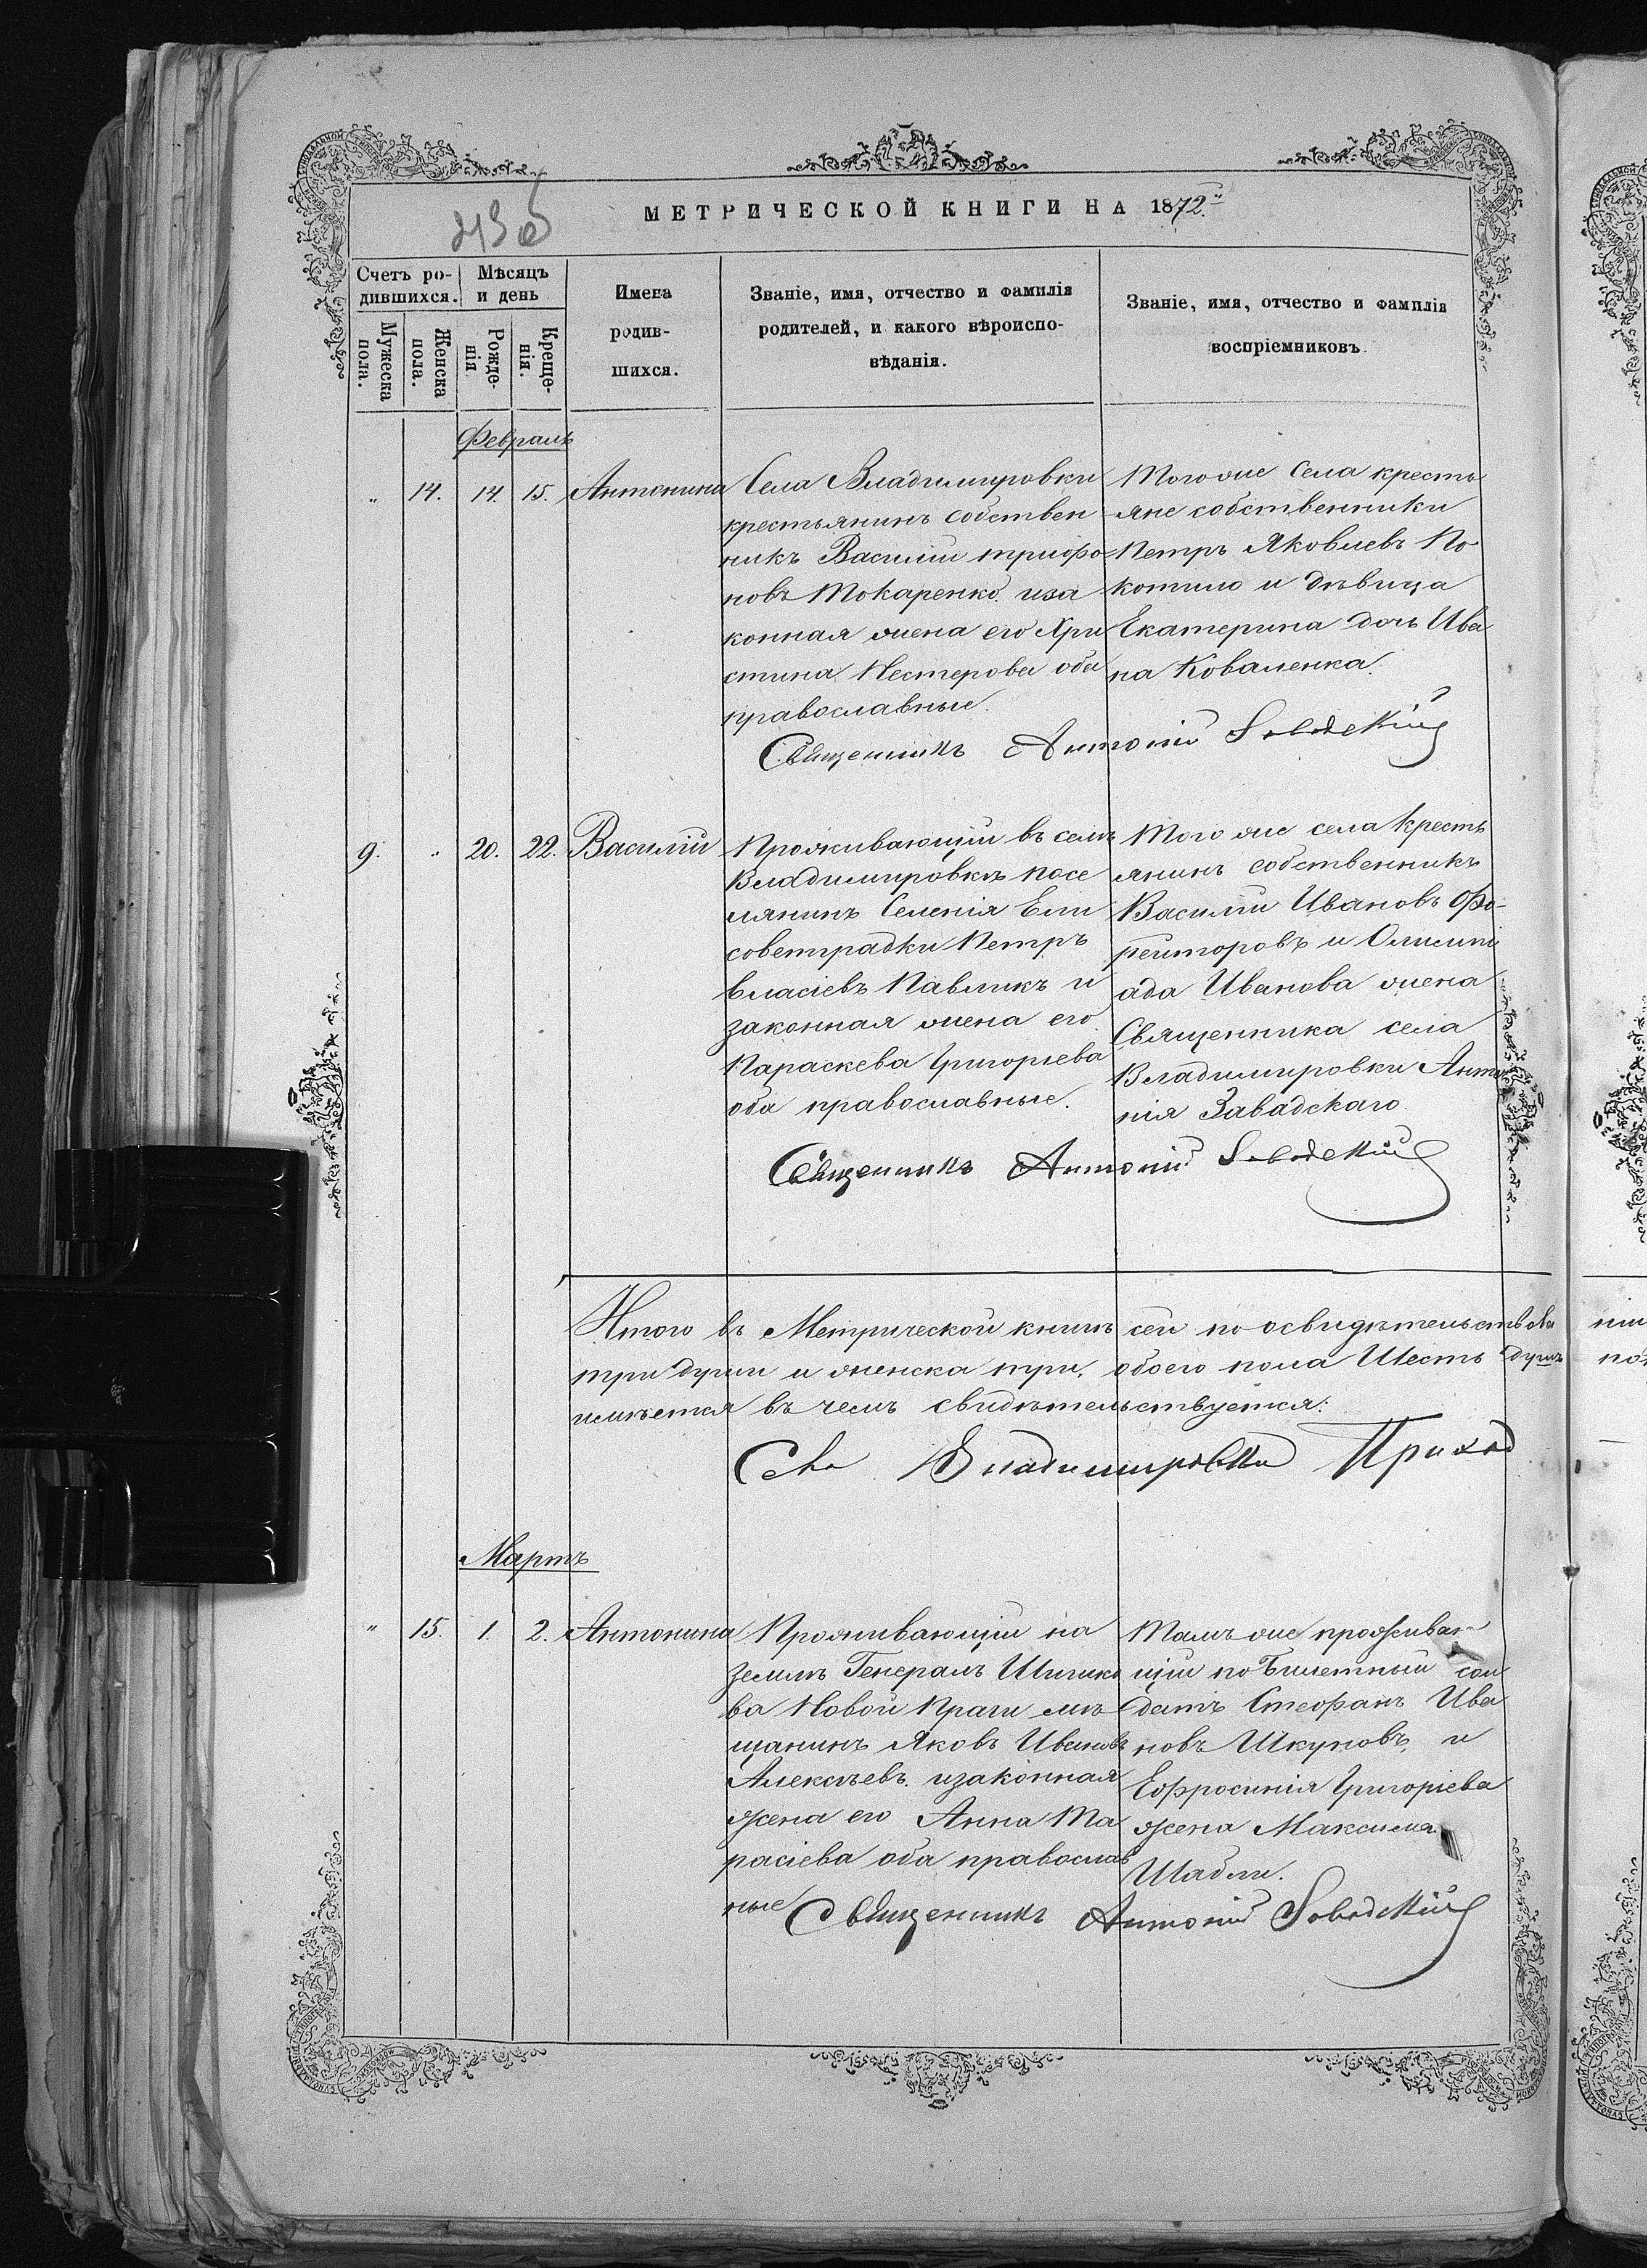 МЕТРИЧЕСКОЙ КНИГИ НА 1872.
Счетъ ро-
дившихся.
Мѣсяцъ
и день
Мужеска
пола.
Женска
пола.
Рожде-
нія
Креще-
нія.
Имена
родив-
шихся.
Званіе, имя, отчество и фамилія
родителей, и какого вѣроиспо-
вѣданія.
Званіе, имя, отчество и фамилія
воспріемниковъ.
Февраль
" 14. 14. 15. Антонина
Села Владимировки
крестьянинъ собствен
никъ Василій трифо
новъ Токаренко иза
конная жена его Хри
стина Нестерова оба
православные.
Того же Села кресть
яне собственники
Петръ Яковлевъ По
котило и дѣвица
Екатерина дочь Ива
на Коваленка.
Священникъ Антоній
9. " 20. 22. Василій
Проживающій въ селѣ
Владимировкѣ посе
лянинъ Селенія Ели
советградки Петръ
Власіевъ Павликъ и
законная жена его
Параскева Григорьева
оба православные.
Того же села Кресть
янинъ собственникъ
Василій Ивановъ Фо-
рейторовъ и Олимпі
ада Иванова жена
Священника села
Владимировки Анто
нія Завадскаго
Священникъ Антоній
Итого въ Метрической книгѣ сей по освидѣтельствова
три души и женска три, обоего пола Шесть душъ
имѣется въ чемъ свидѣтельствуется:
Села Владимировки Приход
Мартъ
" 15. 1. 2. Антонина
Проживающій на
землѣ Генерала Шишко
ва Новой Праги мѣ
щанинъ Яковъ Ивановъ
Алексѣевъ изаконная
жена его Анна Та
расіева оба православ
ные
Тамъ же проживаю
щій по билетный сол
датъ Стефанъ Ива
новъ Шкуновъ, и
Ефросинія Григоріева
жена Максима
Шабли.
Священникъ Антоній